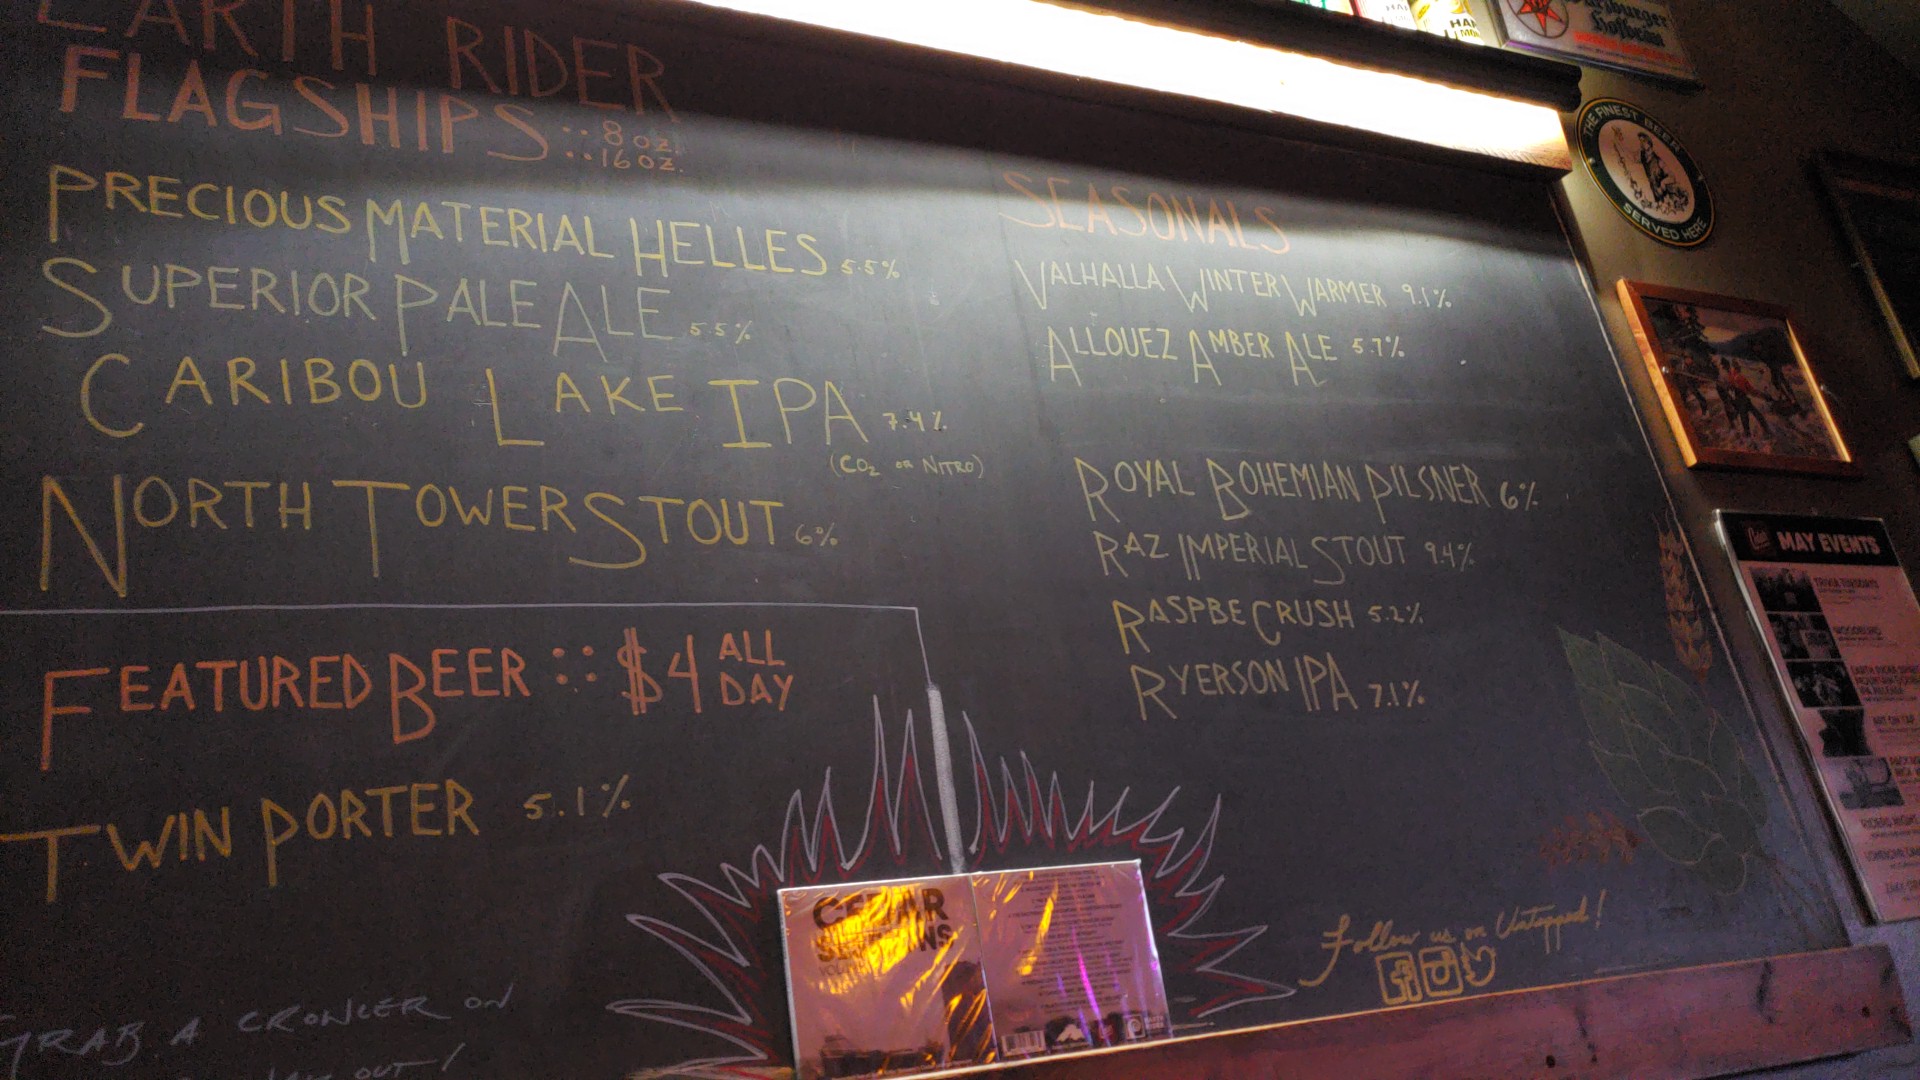 EARTH RIDER
FLAGSHIPS ::8 oz.
::16 oz.
PRECIOUS MATERIAL HELLES 5.5%
SUPERIOR PALE ALE 5.5%
CARIBOU LAKE IPA 7.4%
(CO2 OR NITRO)
NORTH TOWER STOUT 6%
FEATURED BEER :: $4 ALL DAY
TWIN PORTER 5.1%
GRAB A CRONLER ON
OUT!
SEASONALS
VALHALLA WINTER WARMER 9.1%
ALLOUEZ AMBER ALE 5.7%
ROYAL BOHEMIAN PILSNER 6%
RAZ IMPERIAL STOUT 9.4%
RASPBE CRUSH 5.2%
RYERSON IPA 7.1%
Follow us on Untapped!
CEDAR
Hofbräu
THE FINEST BEER
SERVED HERE
MAY EVENTS
TRIVIA TUESDAYS
ART ON TAP